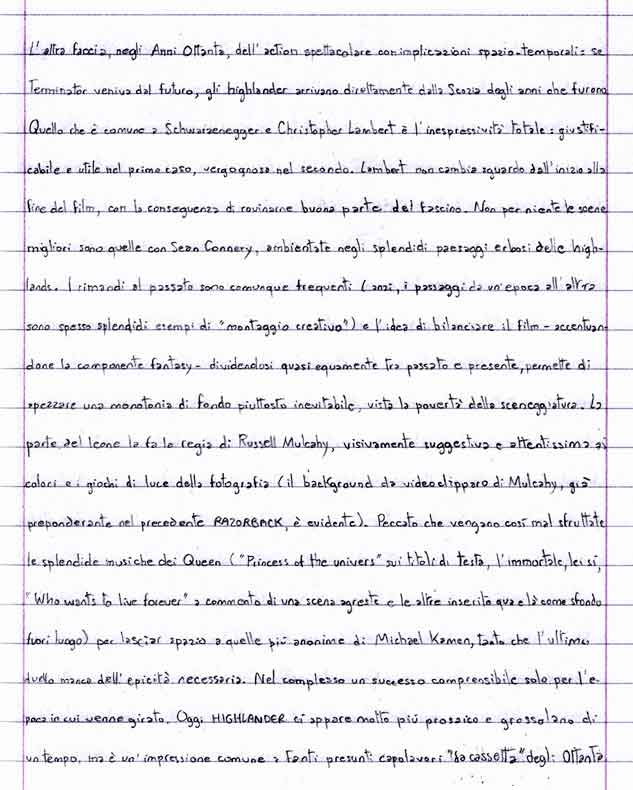 L'altra faccia, negli Anni Ottanta, dell'action spettacolare con implicazioni spazio-temporali: se
Terminator veniva dal futuro, gli highlander arrivano direttamente dalla Scozia degli anni che furono
Quello che è comune a Schwarzenegger e Christopher Lambert è l'inespressività totale: giustifi-
cabile e utile nel primo caso, vergognosa nel secondo. Lambert non cambia sguardo dall'inizio alla
fine del film, con la conseguenza di rovinarne buona parte del fascino. Non per niente le scene
migliori sono quelle con Sean Connery, ambientate negli splendidi paesaggi erbosi delle high-
lands. I rimandi al passato sono comunque frequenti (anzi, i passaggi da un'epoca all'altra
sono spesso splendidi esempi di "montaggio creativo") e l'idea di bilanciare il film - accentuan-
done la componente fantasy - dividendosi quasi equamente tra passato e presente, permette di
spezzare una monotonia di fondo piuttosto inevitabile, vista la povertà della sceneggiatura. La
parte del leone la fa la regia di Russell Mulcahy, visivamente suggestiva e attentissima ai
colori e i giochi di luce della fotografia (il background da videoclipparo di Mulcahy, già
preponderante nel precedente RAZORBACK, è evidente). Peccato che vengano così mal sfruttate
le splendide musiche dei Queen ("Princess of the univers" sui titoli di testa, l'immortale, lei si,
"Who wants to live forever" a commento di una scena agreste e le altre inserite qua e là come sfondo
fuori luogo) per lasciar spazio a quelle più anonime di Michael Kamen, tanto che l'ultimo
duello manca dell'epicità necessaria. Nel complesso un successo comprensibile solo per l'e-
poca in cui venne girato. Oggi HIGHLANDER ci appare molto più prosaico e grossolano di
un tempo, ma è un'impressione comune a tanti presunti capolavori "da cassetta" degli Ottanta